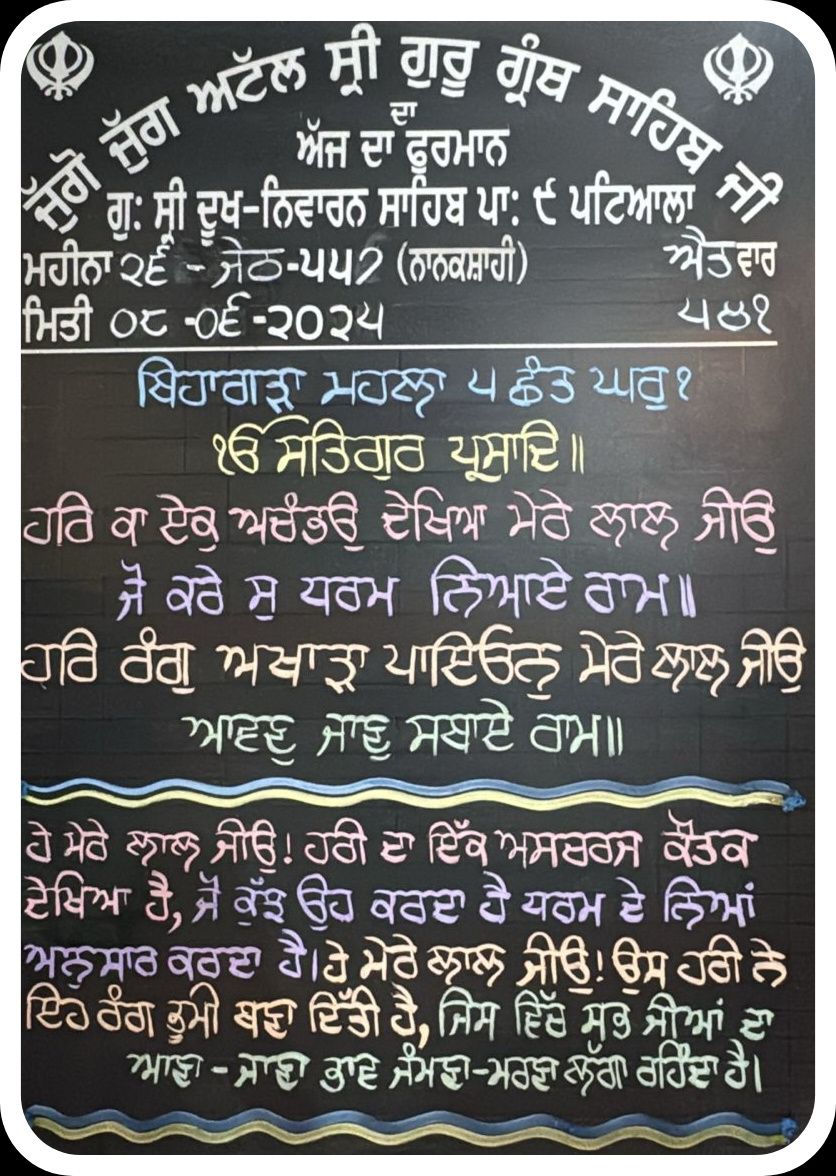 ਜੁੱਗੋ ਜੁੱਗ ਅਟੱਲ ਸ੍ਰੀ ਗੁਰੂ ਗ੍ਰੰਥ ਸਾਹਿਬ ਜੀ
ਦਾ
ਅੱਜ ਦਾ ਫੁਰਮਾਨ
ਗੁ: ਸ੍ਰੀ ਦੂਖ-ਨਿਵਾਰਨ ਸਾਹਿਬ ਪਾ: ੯ ਪਟਿਆਲਾ
ਮਹੀਨਾ ੨੬ - ਜੇਠ-੫੫੭ (ਨਾਨਕਸ਼ਾਹੀ) ਐਤਵਾਰ
ਮਿਤੀ ੦੮ -੦੬ -੨੦੨੫ ੫੪੧
ਬਿਹਾਗੜਾ ਮਹਲਾ ੫ ਛੰਤ ਘਰੁ ੧
ੴ ਸਤਿਗੁਰ ਪ੍ਰਸਾਦਿ॥
ਹਰਿ ਕਾ ਏਕੁ ਅਚੰਭਉ ਦੇਖਿਆ ਮੇਰੇ ਲਾਲ ਜੀਉ
ਜੋ ਕਰੇ ਸੁ ਧਰਮ ਨਿਆਏ ਰਾਮ॥
ਹਰਿ ਰੰਗੁ ਅਖਾੜਾ ਪਾਇਓਨੁ ਮੇਰੇ ਲਾਲ ਜੀਉ
ਆਵਣੁ ਜਾਣੁ ਸਬਾਏ ਰਾਮ॥
ਹੇ ਮੇਰੇ ਲਾਲ ਜੀਉ! ਹਰੀ ਦਾ ਇੱਕ ਅਸਚਰਜ ਕੌਤਕ
ਦੇਖਿਆ ਹੈ, ਜੋ ਕੁੱਝ ਉਹ ਕਰਦਾ ਹੈ ਧਰਮ ਦੇ ਨਿਆਂ
ਅਨੁਸਾਰ ਕਰਦਾ ਹੈ। ਹੇ ਮੇਰੇ ਲਾਲ ਜੀਉ! ਉਸ ਹਰੀ ਨੇ
ਇਹ ਰੰਗ ਭੂਮੀ ਬਣਾ ਦਿੱਤੀ ਹੈ, ਜਿਸ ਵਿੱਚ ਸੁਭ ਜੀਆਂ ਦਾ
ਆਣਾ - ਜਾਣਾ ਭਾਵ ਜੰਮਣਾ-ਮਰਣਾ ਲੱਗਾ ਰਹਿੰਦਾ ਹੈ।